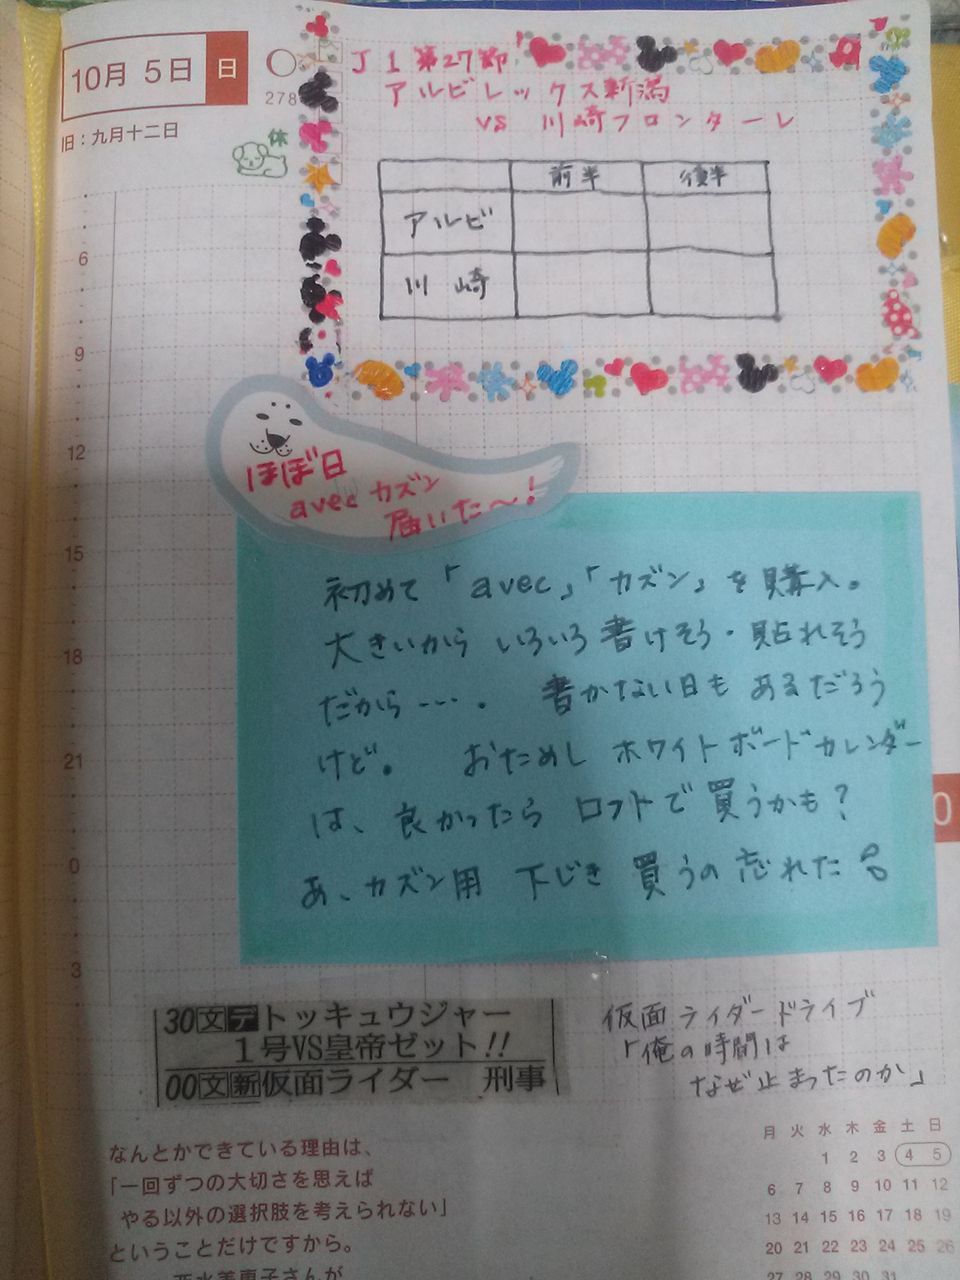 10月 5日 日
278
旧：九月十二日
休
J1 第27節
アルビレックス新潟
vs 川崎フロンターレ
前半 後半
アルビ
川崎
6
9
12
15
18
21
0
3
ほぼ日
avec カズン
届いた〜！
初めて「avec」「カズン」を購入。
大きいから いろいろ書けそう・貼れそう
だから…。 書かない日も あるだろう
けど。 おためし ホワイトボードカレンダー
は、良かったら ロフトで買うかも？
あ、カズン用 下じき 買うの忘れた
0
30文デトッキュウジャー
1号VS皇帝ゼット!!
00文新仮面ライダー 刑事
仮面ライダードライブ
「俺の時間は
なぜ止まったのか」
なんとかできている理由は、
「一回ずつの大切さを思えば
やる以外の選択肢を考えられない」
ということだけですから。
月 火 水 木 金 土 日
1 2 3 4 5
6 7 8 9 10 11 12
13 14 15 16 17 18 19
20 21 22 23 24 25 26
27 28 29 30 31